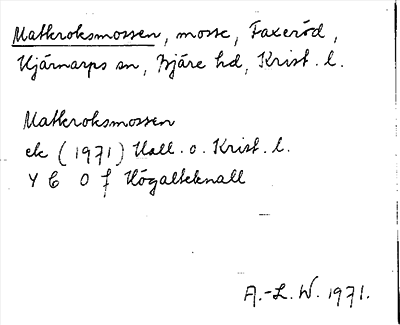 Matkroksmossen, mosse, Faxeröd,
Hjärnarps sn, Bjäre hd, Krist. l.
Matkroksmossen
ek (1971) Hall. o. Krist. l.
Y C O f Högalteknall
A.-L. W. 1971.